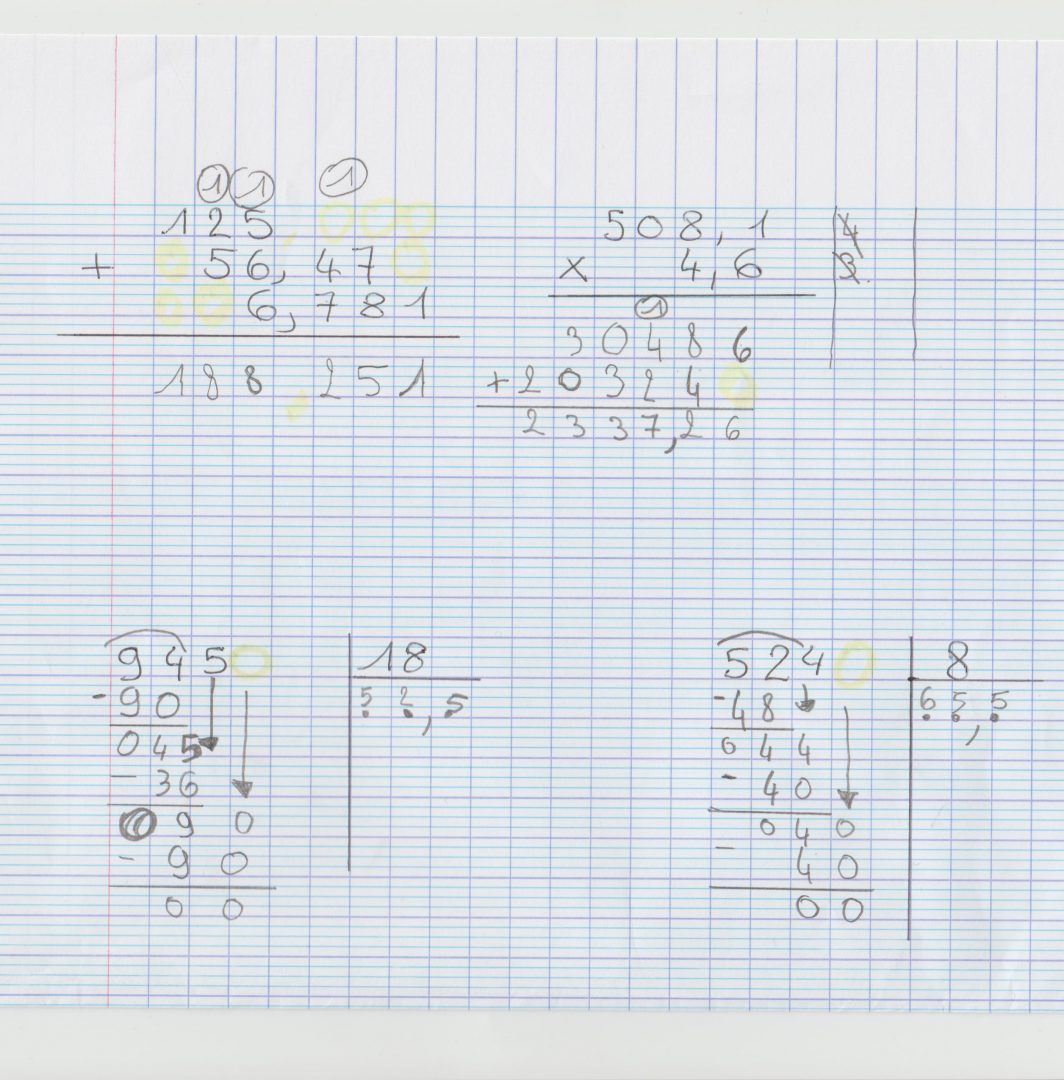 1 1 1
125,000
+ 056,470
006,781
188,251
508,1
x 4,6
4
3
1
30486
+203240
2337,26
9450 18
-90 52,5
045
-36
090
-90
00
5240 8
-48 65,5
044
-40
040
-40
00